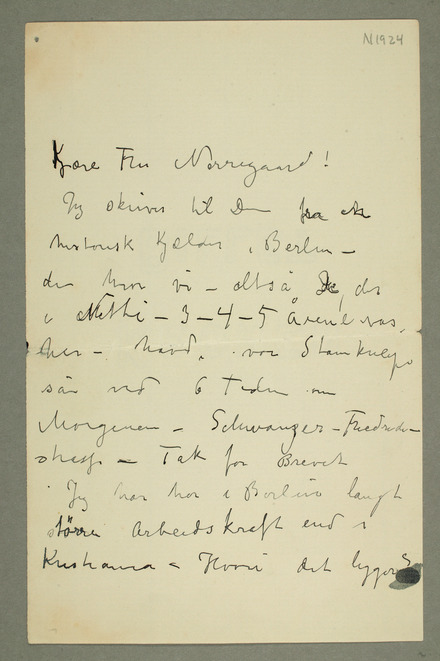 N1924
Kjære Fru Nørregaard!
Jeg skriver til Dem fra en
historisk Kjælder i Berlin –
der hvor vi – altså De, der
i – 3 – 4 – 5 Årene var,
her – havde vor Stamkneipe
så ved 6 Tiden om
Morgenen – Schwarzer – Friedrich-
strasse – Tak for Brevet
Jeg har her i Berlin langt
større Arbeidskraft end i
Kristiania – Hvori det ligger?